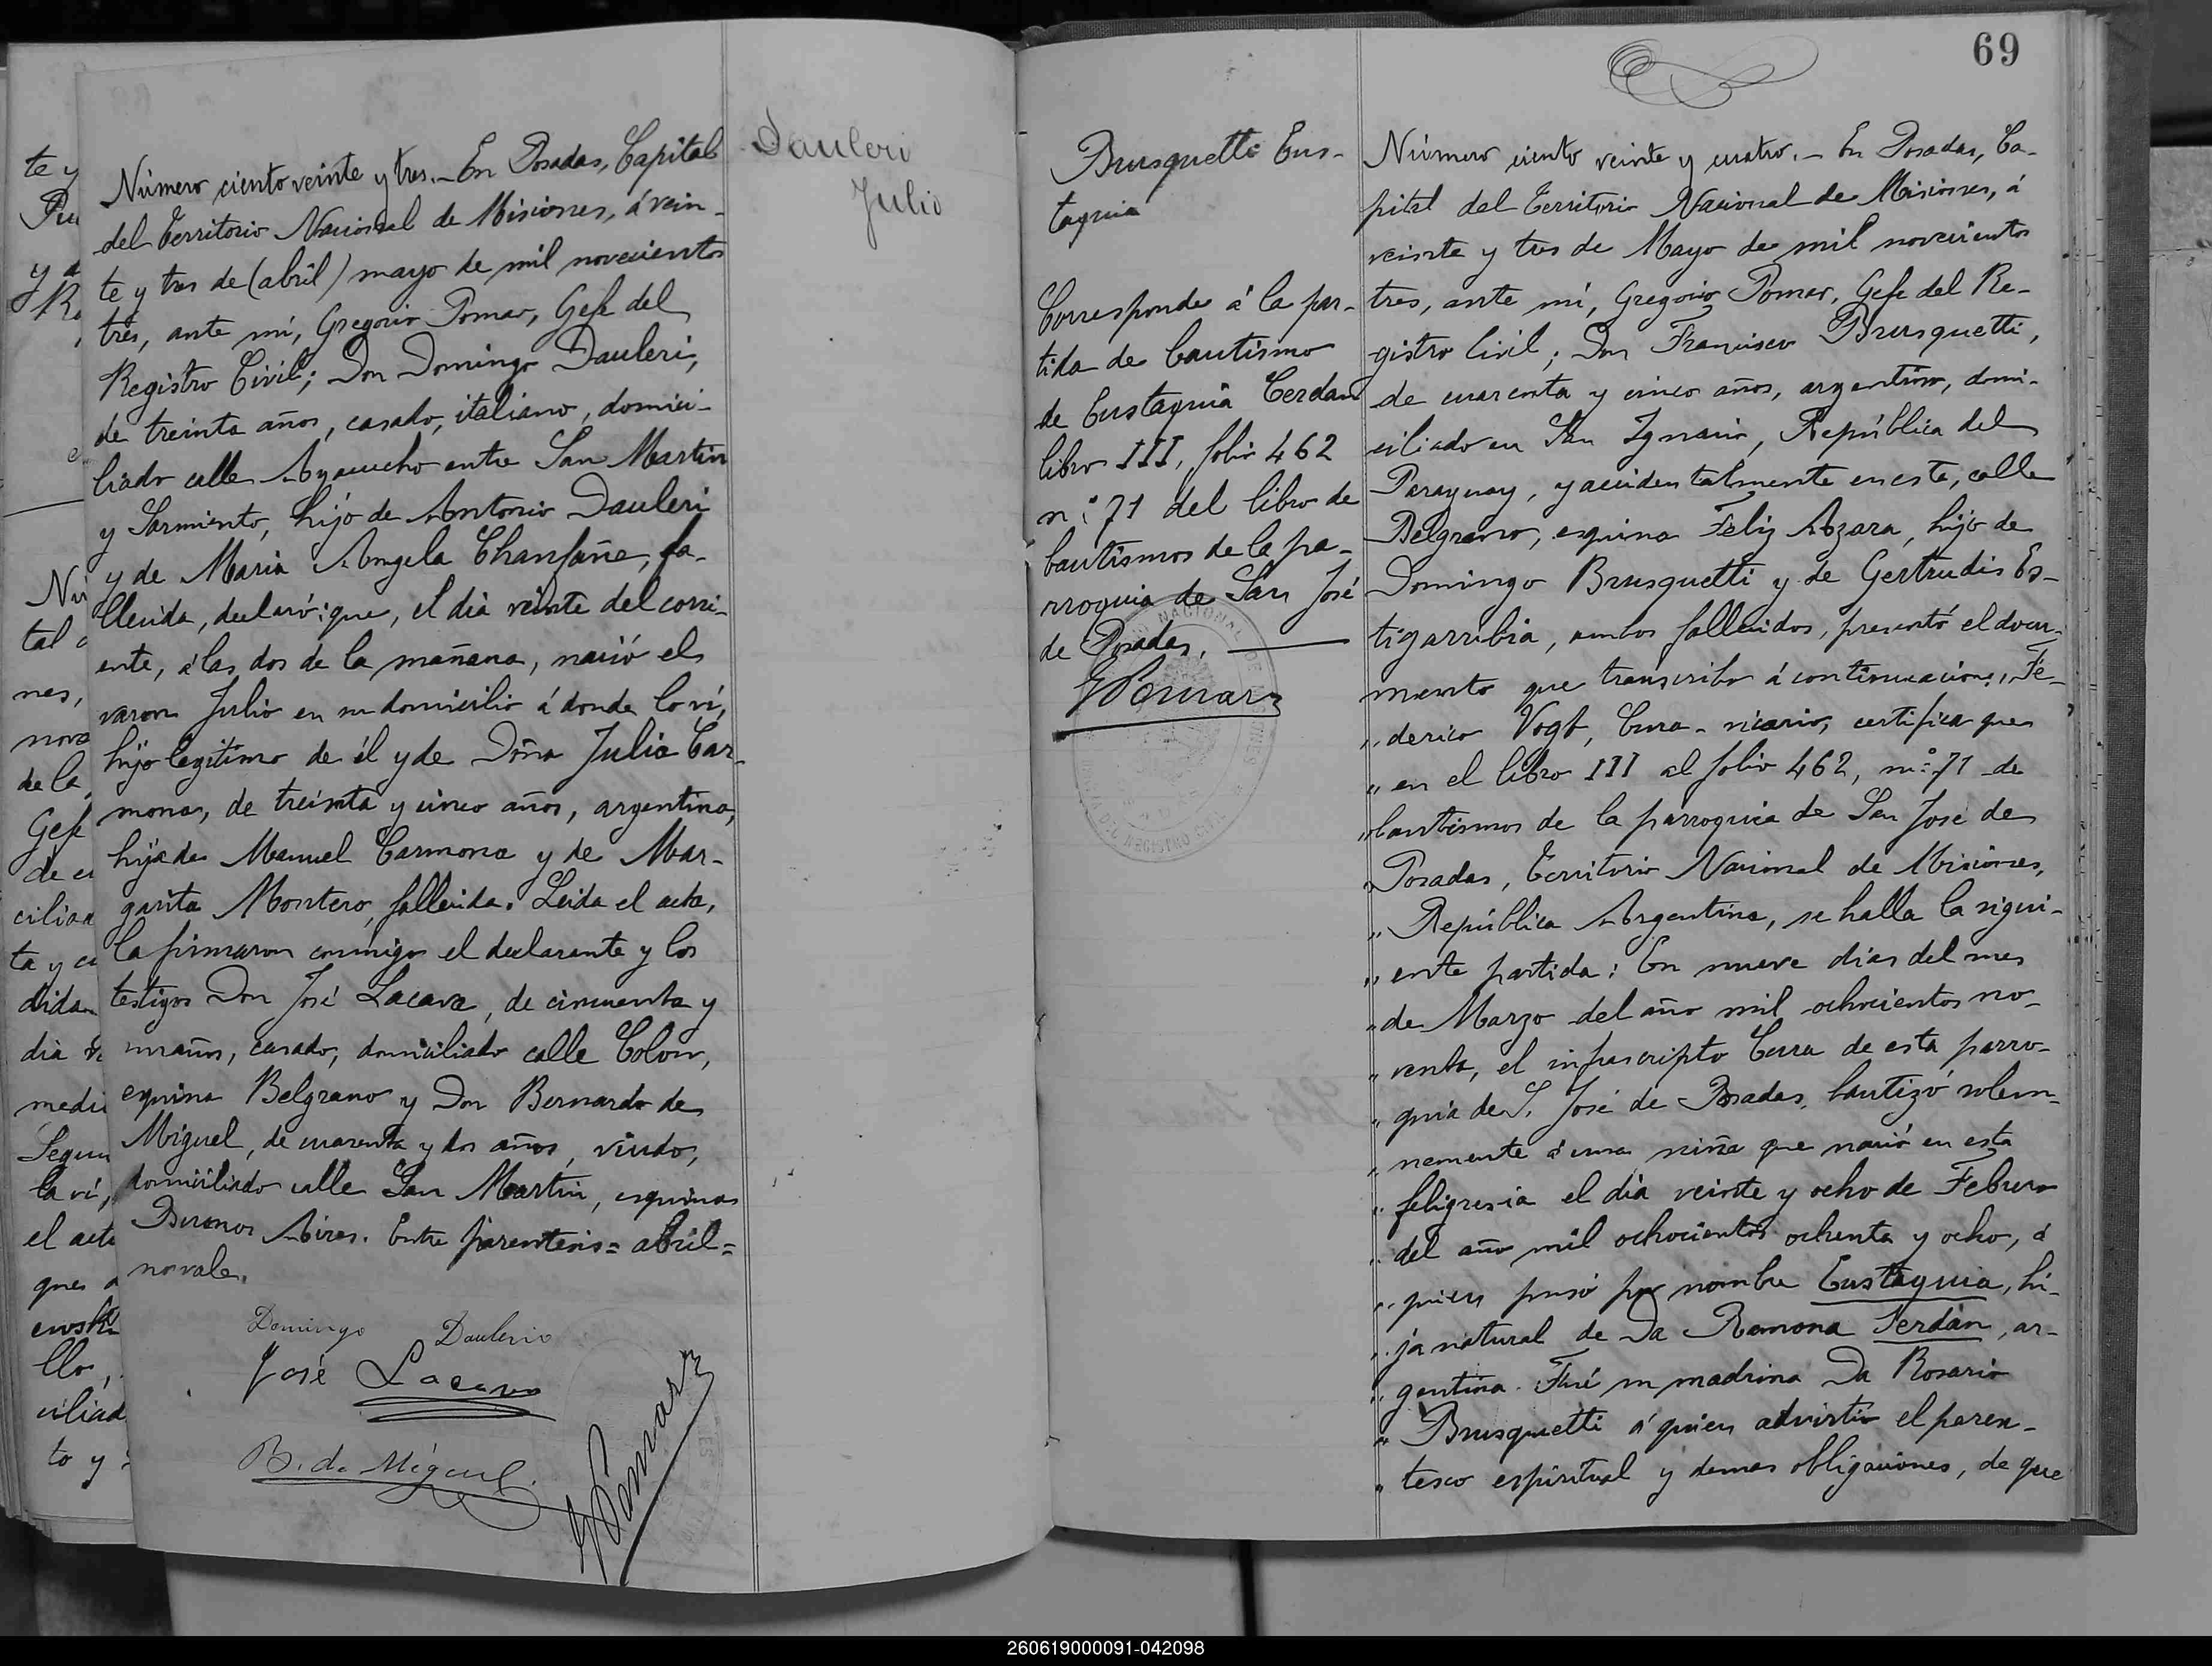 Número ciento veinte y tres.- En Posadas, Capital
del Territorio Nacional de Misiones, á vein-
te y tres de (abril) mayo de mil novecientos
tres, ante mí, Gregorio Pomar, Gefe del
Registro Civil; Don Domingo Dauleri,
de treinta años, casado, italiano, domici-
liado calle Ayacucho entre San Martin
y Sarmiento, hijo de Antonio Dauleri
y de Maria Angela Chanfañe, fa-
llecida, declaró: que, el dia veinte del corri-
ente, á las dos de la mañana, nació el
varon Julio en su domicilio á donde lo ví,
hijo legítimo de él y de Doña Julia Car-
mona, de treinta y cinco años, argentina,
hija de Manuel Carmona y de Mar-
garita Montero, fallecida. Leida el acta,
la firmaron conmigo el declarante y los
testigos Don José Lacava, de cincuenta y
un años, casado, domiciliado calle Colon,
esquina Belgrano y Don Bernardo de
Miguel, de cuarenta y dos años, viudo,
domiciliado calle San Martin, esquina
Buenos Aires. Entre parentesis = abril =
no vale.
Domingo Daulerio
José Lacava
B. de Miguel.
G Pomar
Dauleri
Julio
69
Brusquetti Eus-
taquia
Corresponde á la par-
tida de bautismo
de Eustaquia Cerdan
libro III, folio 462
n.° 71 del libro de
bautismos de la pa-
rroquia de San José
de Posadas.
G Pomar
Número ciento veinte y cuatro.- En Posadas, Ca-
pital del Territorio Nacional de Misiones, á
veinte y tres de Mayo de mil novecientos
tres, ante mí, Gregorio Pomar, Gefe del Re-
gistro Civil; Don Francisco Brusquetti,
de cuarenta y cinco años, argentino, domi-
ciliado en San Ignacio, República del
Paraguay, y accidentalmente en esta, calle
Belgrano, esquina Feliz Azara, hijo de
Domingo Brusquetti y de Gertrudis Es-
tigarribia, ambos fallecidos, presentó el docu-
mento que transcribo á continuacion: "Fe-
" derico Vogt, Cura-vicario, certifica que
" en el libro III al folio 462, n.° 71 de
" bautismos de la parroquia de San José de
" Posadas, Territorio Nacional de Misiones,
" República Argentina, se halla la sigui-
" ente partida: En nueve dias del mes
" de Marzo del año mil ochocientos no-
" venta, el infrascripto Cura de esta parro-
" quia de S. José de Posadas, bautizó solem-
" nemente á una niña que nació en esta
" feligresia el dia veinte y ocho de Febrero
" del año mil ochocientos ochenta y ocho, á
" quien puso por nombre Eustaquia, hi-
" ja natural de Da Ramona Serdán, ar-
" gentina. Fué su madrina Da Rosario
" Brusquetti á quien advirtió el paren-
" tesco espiritual y demas obligaciones, de que
260619000091-042098